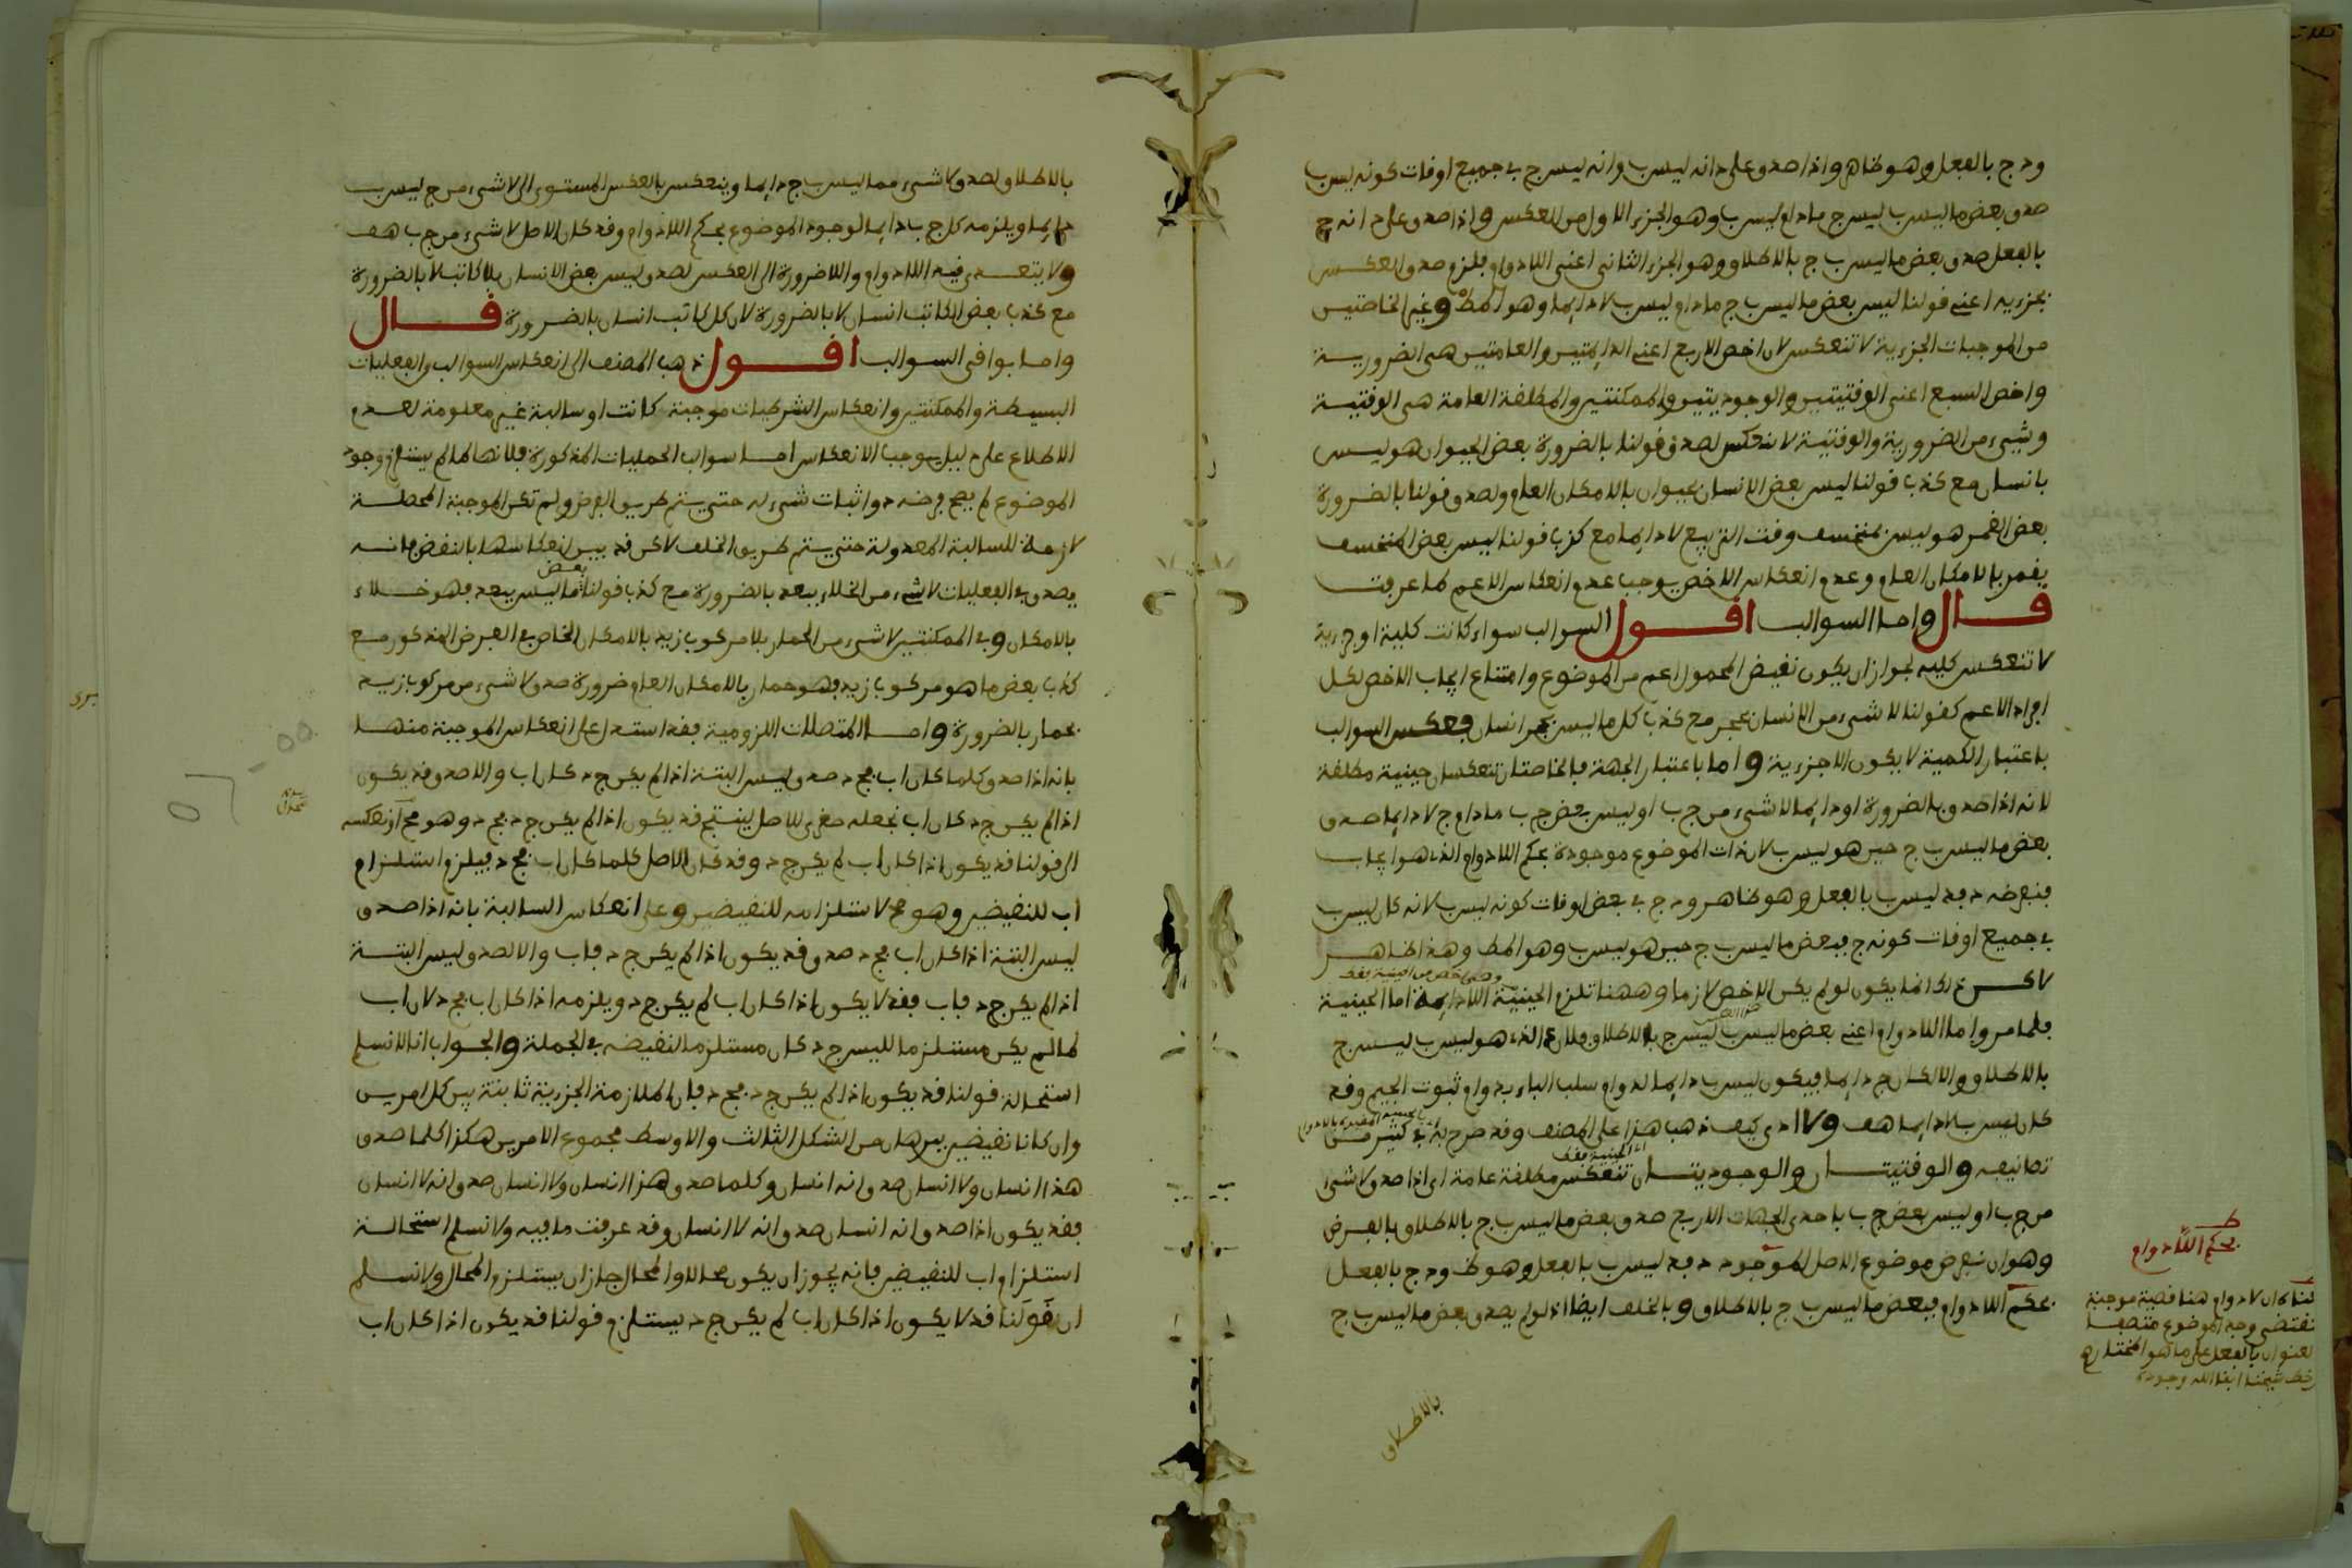 ودج بالفعل وهو ظاهر واذا صدق على د انه ليس ب وانه ليس ج في جميع اوقات كونه ليس ب
صدق بعض ما ليس ب ليس ج مادام ليس ب وهو الجزء الاول من العكس واذا صدق على د انه ج
بالفعل صدق بعض ما ليس ب ج بالاطلاق وهو الجزء الثاني اعني اللادوام فلزم صدق العكس
بجزءيه اعني قولنا ليس بعض ما ليس ب ج مادام ليس ب لا دايما وهو المط وغير الخاصتين
من الموجبات الجزءية لا تنعكس لان اخص الاربع اعني الدايمتين والعامتين هي الضرورية
واخص السبع اعني الوقتيتين والوجوديتين والممكنتين والمطلقة العامة هي الوقتية
وشيء من الضرورية والوقتية لا ينعكس لصدق قولنا بالضرورة بعض الحيوان هو ليس
بانسان مع كذب قولنا ليس بعض الانسان بحيوان بالامكان العام ولصدق قولنا بالضرورة
بعض القمر هو ليس بمنخسف وقت التربيع لا دايما مع كذب قولنا ليس بعض المنخسف
بقمر بالامكان العام وعدم انعكاس الاخص يوجب عدم انعكاس الاعم كما عرفت
قال واما السوالب اقول السوالب سواء كانت كلية او جزءية
لا تنعكس كليه لجواز ان يكون نقيض المحمول اعم من الموضوع وامتناع ايجاب الاخص لكل
افراد الاعم كقولنا لا شيء من الانسان بحجر مع كذب كل ما ليس بحجر انسان فعكس السوالب
باعتبار الكمية لا يكون الا جزءية واما باعتبار الجهة فالخاصتان تنعكسان حينية مطلقة
لانه اذا صدق بالضرورة او دايما لا شيء من ج ب او ليس بعض ج ب مادام ج لا دايما صدق
بعض ما ليس ب ج حين هو ليس ب لان ذات الموضوع موجودة بحكم اللادوام الذي هو ايجاب
فنفرضه د فد ليس ب بالفعل وهو ظاهر ود ج في بعض اوقات كونه ليس ب لانه كان ليس ب
في جميع اوقات كونه ج فبعض ما ليس ب ج حين هو ليس ب وهو المط وهذا ظاهر
لاكن ذلك انما يكون لو لم يكن الاخص لازما وههنا تلزم الحينية اللادايمة اما الحينية
فلما مر واما اللادوام اعني بعض ما ليس ب ليس ج بالاطلاق فلان الذي هو ليس ب ليس ج
بالاطلاق والا لكان ج دايما فيكون ليس ب دايما لدوام سلب الباء بدوام ثبوت الجيم وقد
كان ليس ب لا دايما هف ولا ادري كيف ذهب هذا على المصنف وقد صرح به في كثير من
تصانيفه والوقتيتان والوجوديتان تنعكس مطلقة عامة اي اذا صدق لا شيء
من ج ب او ليس بعض ج ب باحدى الجهات الاربع صدق بعض ما ليس ب ج بالاطلاق بالفرض
وهو ان نفرض موضوع الاصل الموجود د فد ليس ب بالفعل وهو ظ ود ج بالفعل
بحكم اللادوام فبعض ما ليس ب ج بالاطلاق وبالخلف ايضا اذ لو لم يصدق بعض ما ليس ب ج
بالاطلاق
بحكم اللادوام
لنا كان لادوام هنا قضية موجبة
تقتضي وجود الموضوع متصفا
بالفعل على ما هو المختار
بالاطلاق لصدق لا شيء مما ليس ب ج دايما وينعكس بالعكس المستوي الى لا شيء من ج ليس ب
دايما ويلزمه كل ج ب دايما لوجود الموضوع بحكم اللادوام وقد كان الاصل لا شيء من ج ب هف
ولا يتعدى فيه اللادوام واللاضرورة الى العكس لصدق ليس بعض الانسان بلا كاتب لا بالضرورة
مع كذب بعض الكاتب انسان لا بالضرورة لان كل كاتب انسان بالضرورة قال
واما بواقي السوالب اقول ذهب المصنف الى انعكاس السوالب والفعليات
البسيطة والممكنتين وانعكاس الشرطيات موجبة كانت او سالبة غير معلومة لعدم
الاطلاع على دليل يوجب الانعكاس اما سوالب الحمليات المذكورة فلانها لما لم يستلزم وجود
الموضوع لم يصح فرضه د واثبات شيء له حتى يتم طريق الفرض ولم تكن الموجبة المحصلة
لازمة للسالبة المعدولة حتى يتم طريق الخلف لاكن قد بين انعكاسها بالنقض فانه
يصدق في الفعليات لا شيء من الخلاء ببعد بالضرورة مع كذب قولنا بعض ما ليس ببعد فهو خلاء
بالامكان وفي الممكنتين لا شيء من الحمار بلا مركوب زيد بالامكان الخاص في الفرض المذكور مع
كذب بعض ما هو مركوب زيد فهو حمار بالامكان العام ضرورة صدق لا شيء من مركوب زيد
بحمار بالضرورة واما المتصلات اللزومية فقد استدل على انعكاس الموجبة منها
بانه اذا صدق كلما كان اب فج د صدق ليس البتة اذا لم يكن ج د كان اب والا صدق قد يكون
اذا لم يكن ج د كان اب نجعله صغرى للاصل لينتج قد يكون اذا لم يكن ج د فج د وهو مح او نعكسه
الى قولنا قد يكون اذا كان اب لم يكن ج د وقد كان الاصل كلما كان اب فج د فيلزم استلزام
اب للنقيضين وهو مح لاستلزامه للنقيضين وعلى انعكاس السالبة بانه اذا صدق
ليس البتة اذا كان اب فج د صدق قد يكون اذا لم يكن ج د فاب والا لصدق ليس البتة
اذا لم يكن ج د فاب فقد لا يكون اذا كان اب لم يكن ج د ويلزمه اذا كان اب فج د لان اب
لما لم يكن مستلزما لليس ج د كان مستلزما لنقيضه في الجملة والجواب انا لا نسلم
استحالة قولنا قد يكون اذا لم يكن ج د فج د فان الملازمة الجزءية ثابتة بين كل امرين
وان كانا نقيضين ببرهان من الشكل الثالث والاوسط مجموع الامرين هكذا كلما صدق
هذا انسان ولا انسان صدق انه انسان وكلما صدق هذا انسان ولا انسان صدق انه لا انسان
فقد يكون اذا صدق انه انسان صدق انه لا انسان وقد عرفت ما فيه ولا نسلم استحالة
استلزام اب للنقيضين فانه يجوز ان يكون محالا والمحال جاز ان يستلزم المحال ولا نسلم
ان قولنا قد لا يكون اذا كان اب لم يكن ج د يستلزم قولنا قد يكون اذا كان اب